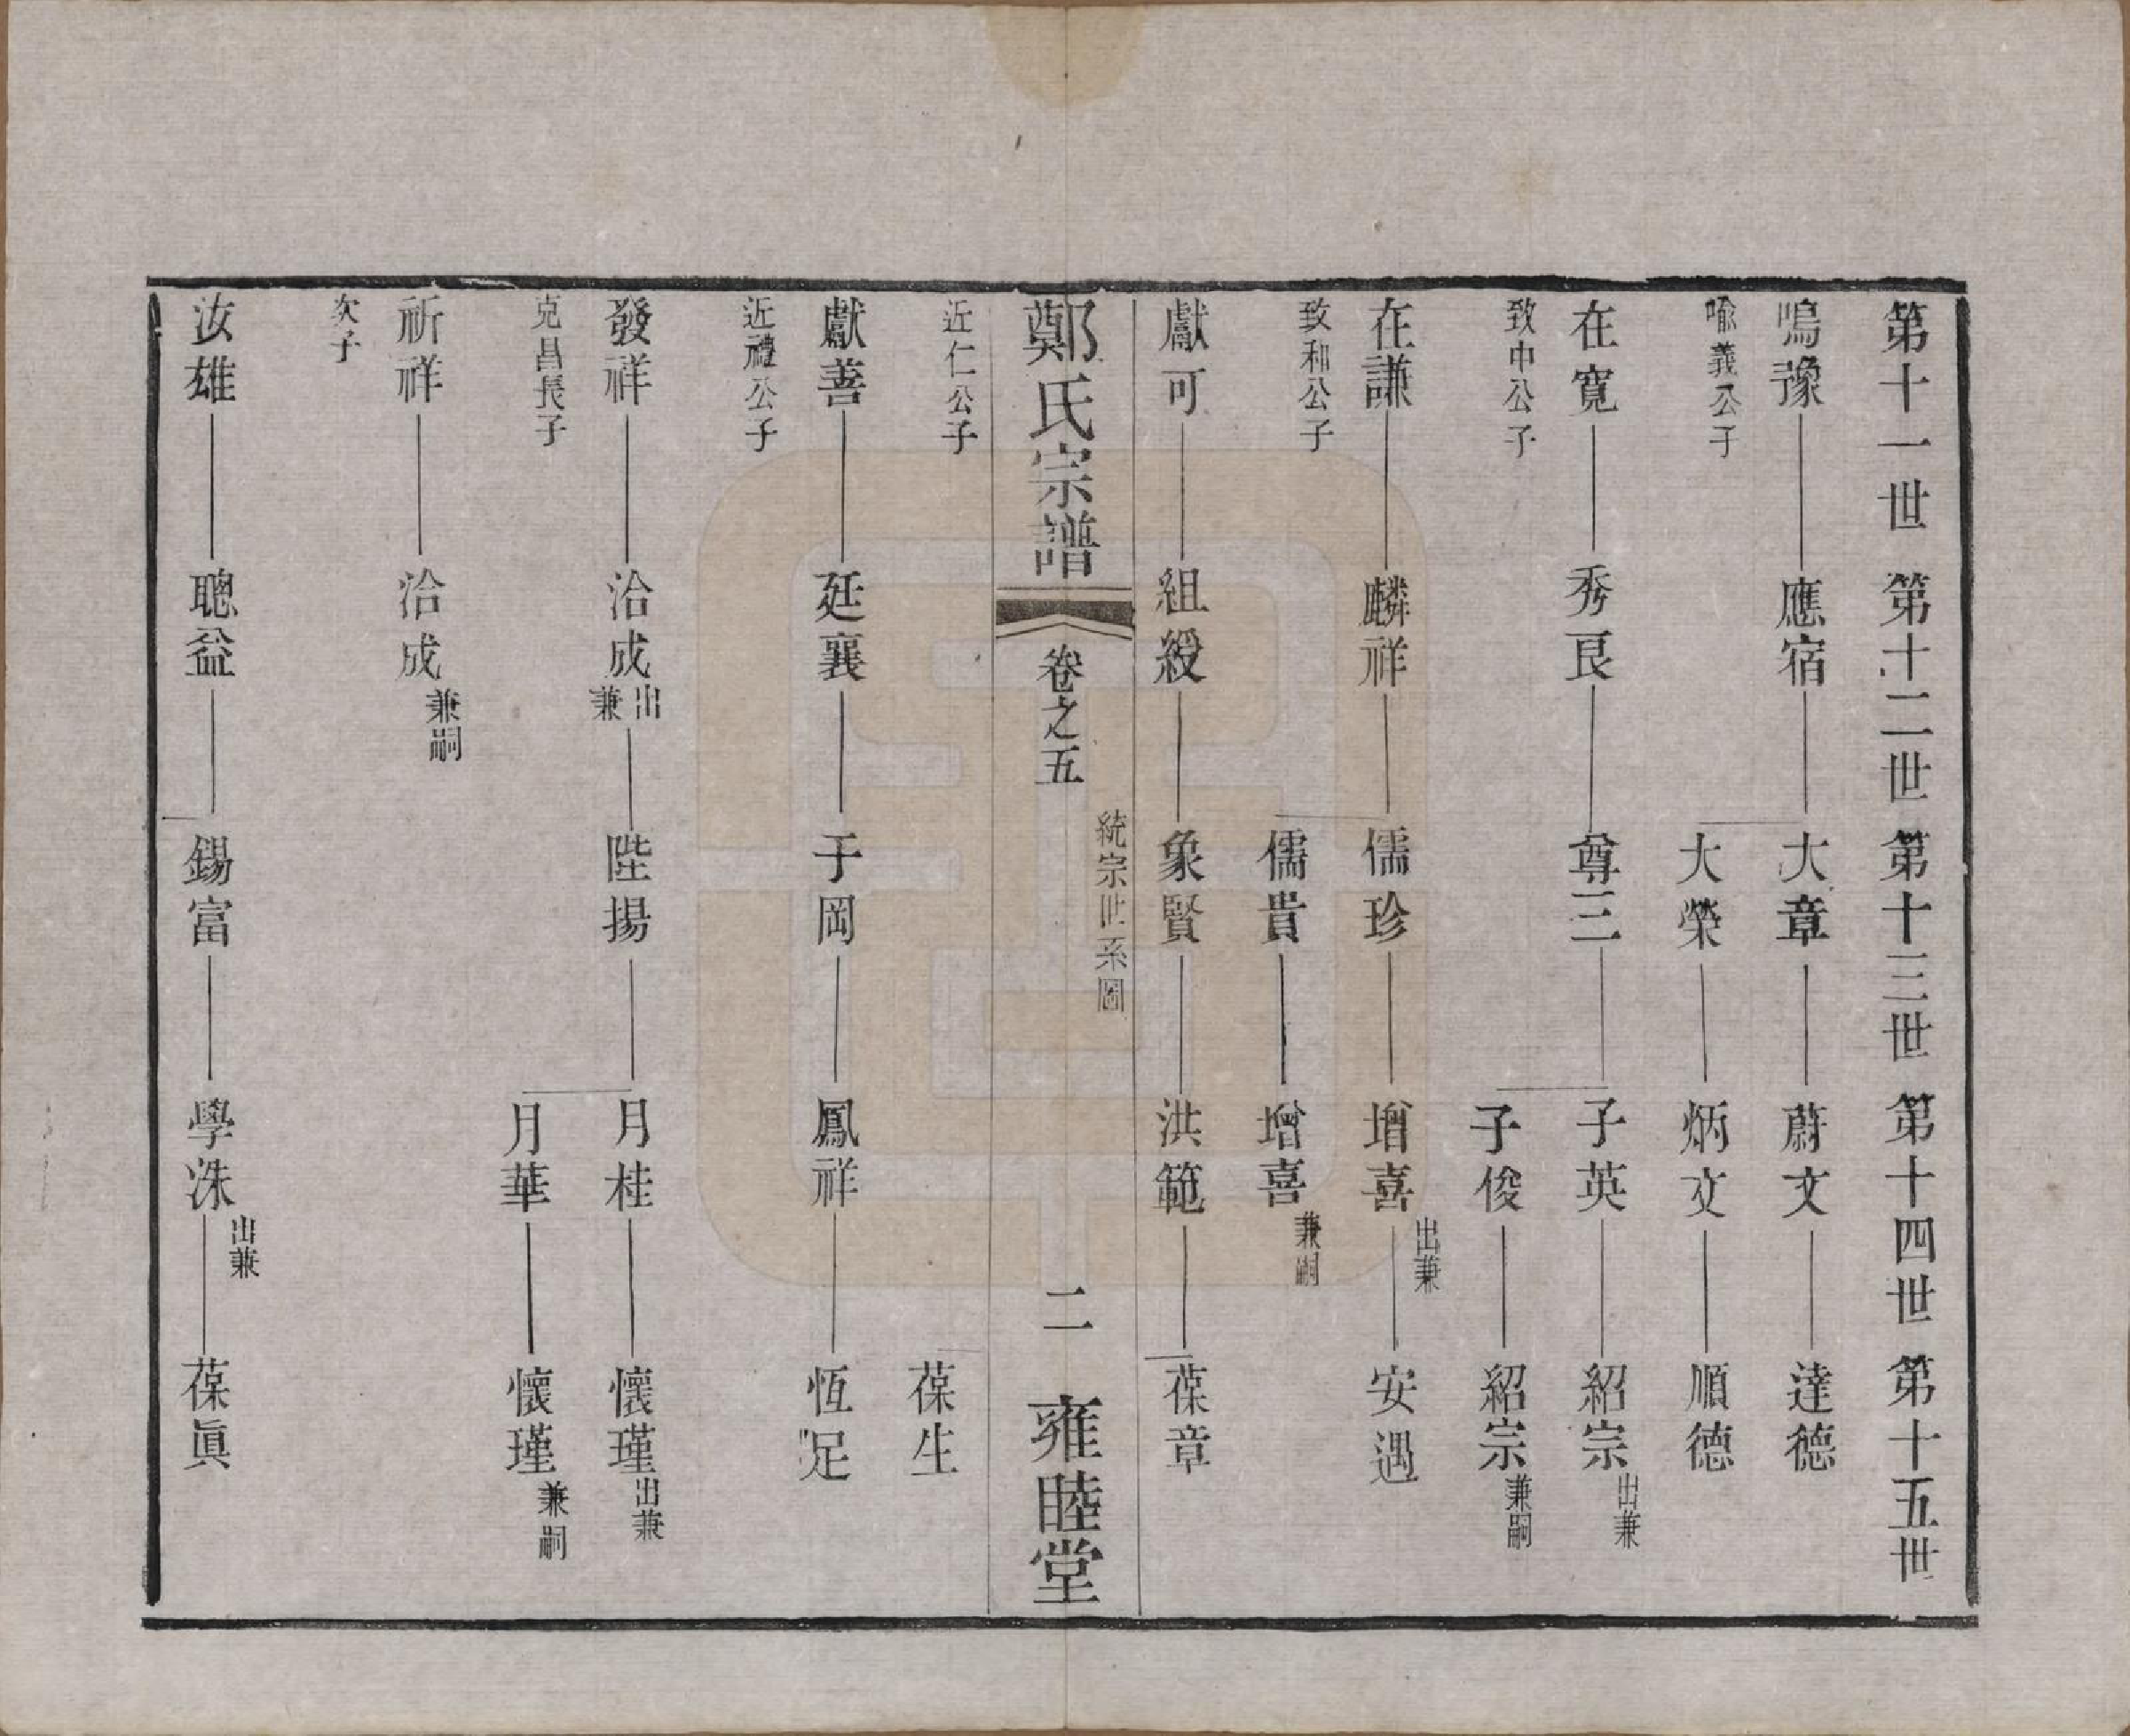 第十一世 第十二世 第十三世 第十四世 第十五世
鳴豫 應宿 大章 蔚文 達德
喩義公子 大榮 炳文 順德
在寬 秀艮 尊三 子英 紹宗 出兼
致中公子 子俊 紹宗 兼嗣
在謙 麟祥 儒珍 增喜 出兼 安遇
致和公子 儒貴 增喜 兼嗣
獻可 組綬 象賢 洪範 葆章
鄭氏宗譜 卷之五 統宗世系圖 二 雍睦堂
近仁公子 葆生
獻善 廷襄 于岡 鳳祥 恆足
近禮公子
發祥 洽成 出兼 陛揚 月桂 懷瑾 出兼
克昌長子 月華 懷瑾 兼嗣
祈祥 洽成 兼嗣
次子
汝雄 聰益 錫富 學洙 出兼 葆眞